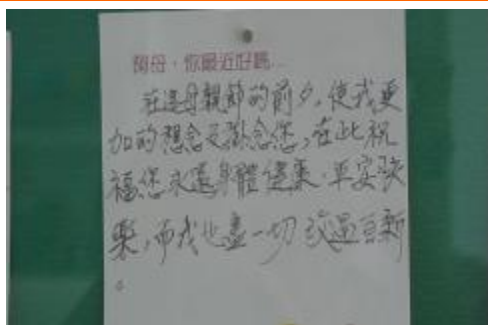 阿母，你最近好嗎...
在這母親節的前夕，使我更
加的想念及掛念您，在此祝
福您永遠身體健康，平安快
樂，而我也盡一切改過自新
。